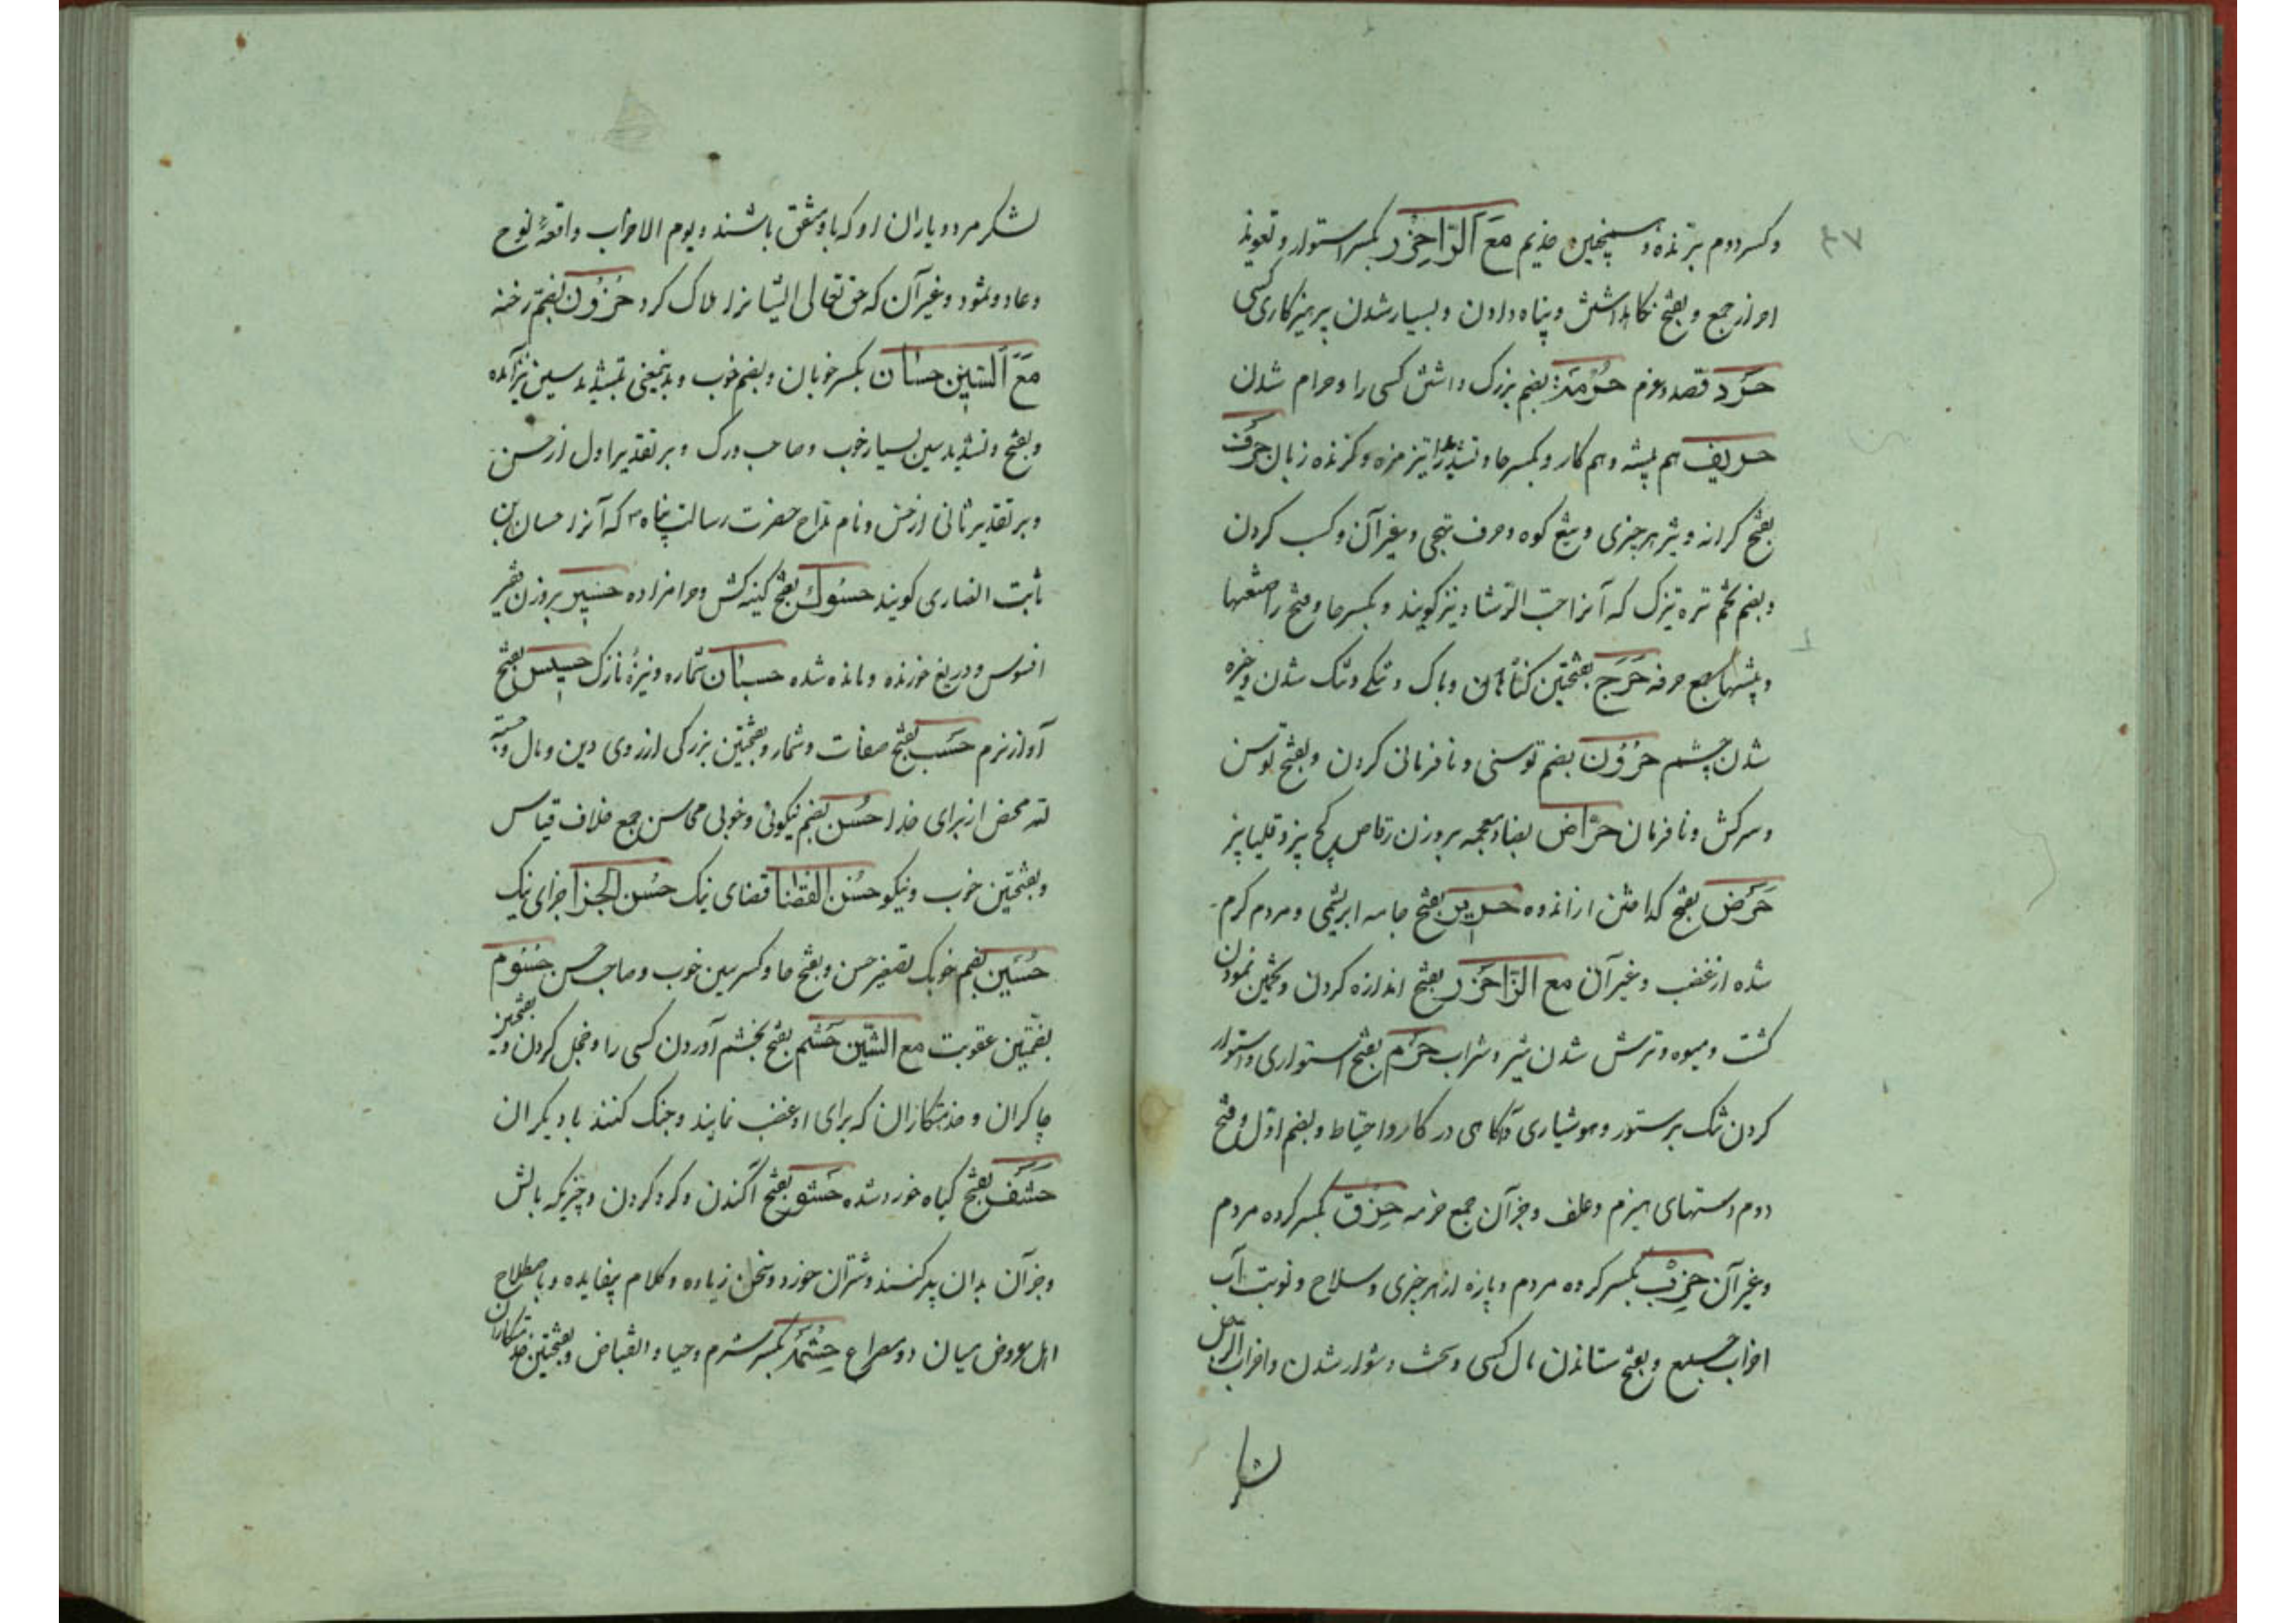 ۳۷
وکسر دوم برنده و همچنین حذیم مع الرّا حِرْز بکسر استوار و تعویذ
احراز جمع و بفتح نکاهداشتن و پناه دادن و بسیار شدن پرهیزکاری کسی
حَرَد قصد و عزم حُرْمَة بضم بزرک داشتن کسی را و حرام شدن
حریف هم پیشه و هم کار و بکسر حا و تشدید را تیز مزه و کزنده زبان حرف
بفتح کرانه و تیز هر چیزی و تیغ کوه و حرف تهجی و غیر آن و کسب کردن
و بضم تخم تره تیزک که آنرا حبّ الرّشاد نیز کویند و بکسر حا و فتح را صنعتها
و پیشها جمع حرفه حَرَج بفتحتین کناهان و باک و تنکی و تنک شدن و خیره
شدن چشم حُرُون بضم توسنی و نافرمانی کردن و بفتح توسن
و سرکش و نافرمان حرّاض بضاد معجمه بروزن رقاص کچ پز و قلیا پز
حَرَض بفتح کداختن از اندوه حریر بفتح جامه ابریشمی و مردم کرم
شده از غضب و غیر آن مع الزّا حَزْر بفتح اندازه کردن و تخمین نمودن
کشت و میوه و ترش شدن شیر و شراب حَزْم بفتح استواری و استوار
کردن تنک بر ستور و هوشیاری و آکاهی در کار و احتیاط و بضم اوّل و فتح
دوم دستهای هیزم و علف و جز آن جمع حزمه حِزْق بکسر کروه مردم
و غیر آن حِزْب بکسر کروه مردم و پاره از هر چیزی و سلاح و نوبت آب
احزاب جمع و بفتح ستاندن مال کسی و سخت و دشوار شدن و احزاب الرجل
لشکر مرد و یاران او که با او متفق باشند و یوم الاحزاب واقعهٔ نوح
و عاد و ثمود و غیر آن که حق تعالی ایشانرا هلاک کرد حُزُون بضم رخنه
مَعَ السّین حسان بکسر خوبان و بضم خوب و بدینمعنی بتشدید سین نیز آمده
و بفتح و تشدید سین بسیار خوب و صاحب درک و بر تقدیر اول از حسن
و بر تقدیر ثانی از حس و نام مداح حضرت رسالت پناه ص که آنرا حسان بن
ثابت انصاری کویند حسُوک بفتح کینه کش و حرامزاده حسیر بروزن فقیر
افسوس و دریغ خورنده و مانده شده حسبان شماره و نیزهٔ نازک حسیس بفتح
آواز نرم حَسَب بفتح صفات و شمار و بفتحتین بزرکی از روی دین و مال و حسبة
لله محض از برای خدا حُسْن بضم نیکوئی و خوبی محاسن جمع خلاف قیاس
و بفتحتین خوب و نیکو حُسْن القضا قضای نیک حُسْن الجزا جزای نیک
حُسَین بضم خوبک تصغیر حسن و بفتح حا و کسر سین خوب و صاحب حسن حُسُوم
بضمّتین عقوبت مع الشّین حَشم بفتح بخشم آوردن کسی را و خجل کردن و بفتحتین
چاکران و خدمتکاران که برای او غضب نمایند و جنک کنند با دیکران
حَشَف بفتح کیاه خورد شده حَشو بفتح آکندن و کرد کردن و چیزیکه بالش
و جز آن بدان پر کنند و شتران خورد و سخن زیاده و کلام بیفایده و باصطلاح
اهل عروض میان دو مصراع حِشْمَة بکسر شرم و حیا و انقباض و بفتحتین خدمتکاران